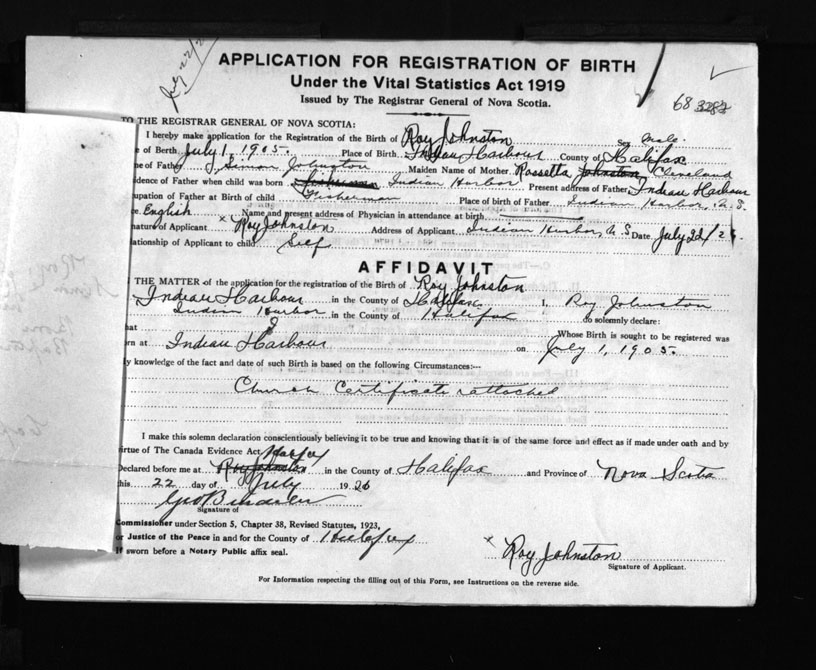 July 22/2
APPLICATION FOR REGISTRATION OF BIRTH
Under the Vital Statistics Act 1919
Issued by The Registrar General of Nova Scotia.
68
TO THE REGISTRAR GENERAL OF NOVA SCOTIA:
I hereby make application for the Registration of the Birth of Roy Johnston Sex Male.
e of Berth July 1, 1905. Place of Birth Indian Harbour County of Halifax
ne of Father J. Simon Johnston Maiden Name of Mother Rossetta Johnston, Cleveland
idence of Father when child was born Fisherman Indian Harbor Present address of Father Indian Harbour
upation of Father at Birth of child Fisherman Place of birth of Father Indian Harbor, N.S.
e. English Name and present address of Physician in attendance at birth
nature of Applicant x Roy Johnston Address of Applicant Indian Harbor, N S Date July 22/26.
lationship of Applicant to child Self
AFFIDAVIT
THE MATTER of the application for the registration of the Birth of Roy Johnston
Indian Harbour in the County of Halifax I, Roy Johnston
Indian Harbor in the County of Halifax do solemnly declare:
hat I Whose Birth is sought to be registered was
rn at Indian Harbour on July 1, 1905.
y knowledge of the fact and date of such Birth is based on the following Circumstances:—
Church Certificate attached
I make this solemn declaration conscientiously believing it to be true and knowing that it is of the same force and effect as if made under oath and by
irtue of The Canada Evidence Act. Halifax
Declared before me at Roy Johnston in the County of Halifax and Province of Nova Scotia
his 22 day of July 1926
Signature of
Commissioner under Section 5, Chapter 38, Revised Statutes, 1923,
or Justice of the Peace in and for the County of Halifax
If sworn before a Notary Public affix seal.
x Roy Johnston
Signature of Applicant.
For Information respecting the filling out of this Form, see Instructions on the reverse side.